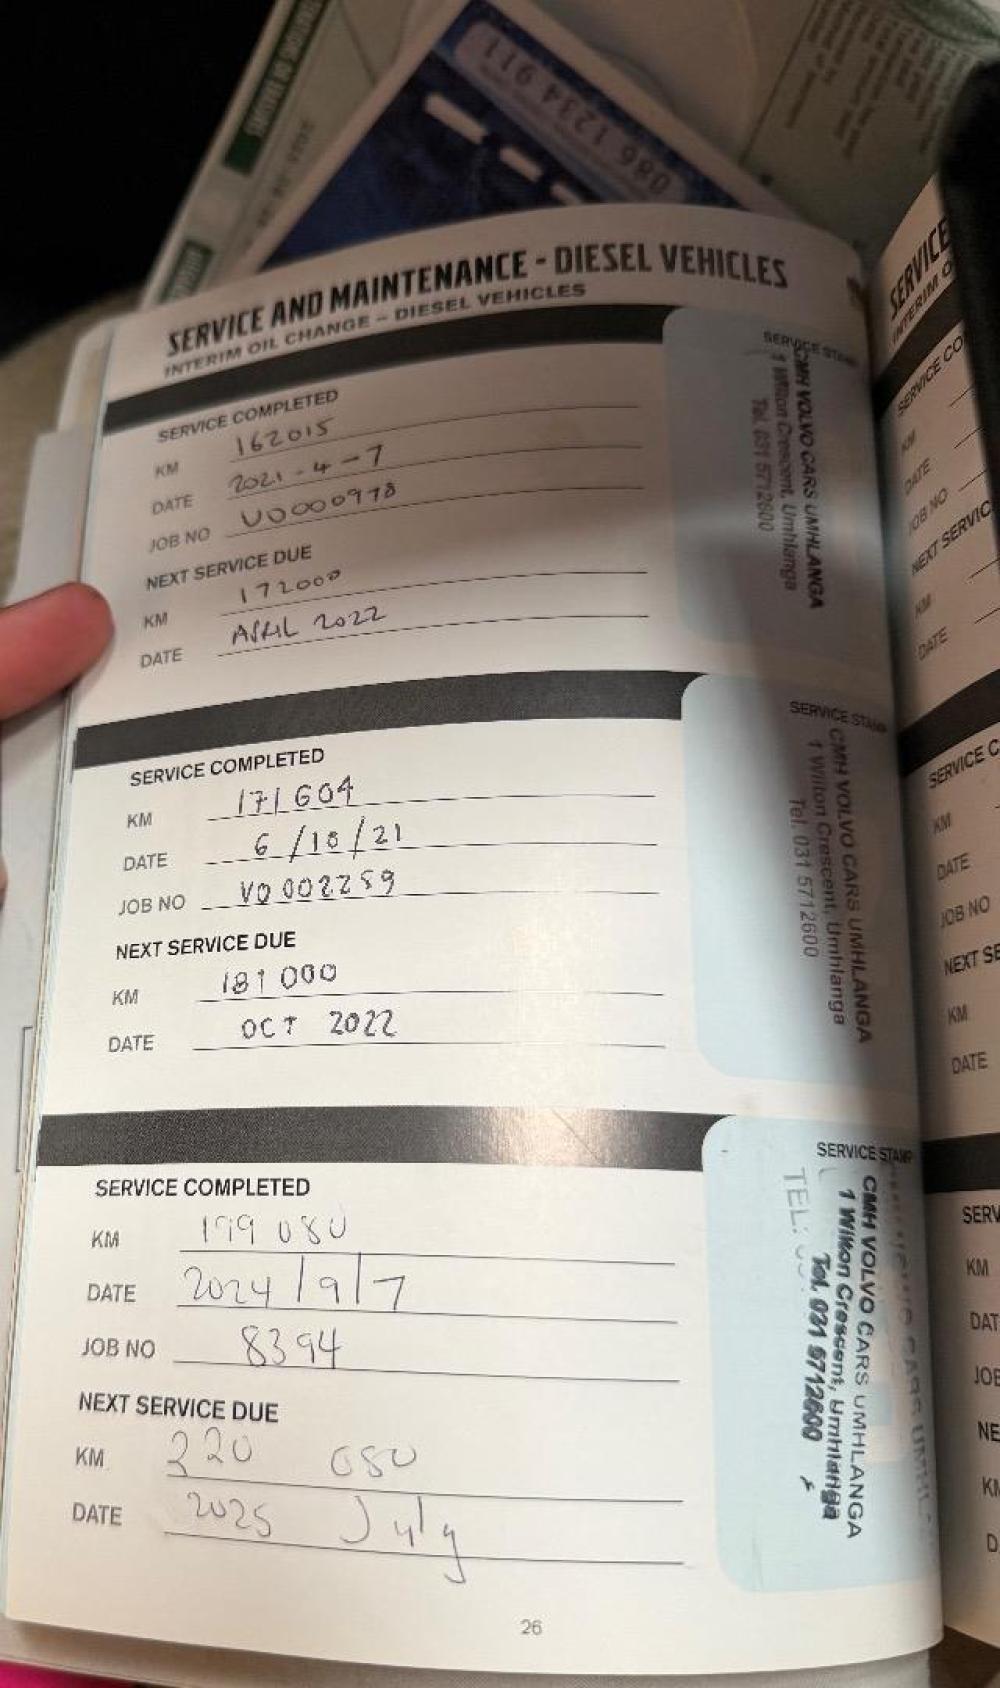 086 1234 911
SERVICE AND MAINTENANCE - DIESEL VEHICLES
INTERIM OIL CHANGE – DIESEL VEHICLES
SERVICE COMPLETED
KM 162015
DATE 2021-4-7
JOB NO V0000978
NEXT SERVICE DUE
KM 172000
DATE APRIL 2022
SERVICE STAMP
CMH VOLVO CARS UMHLANGA
1 Wilton Crescent, Umhlanga
Tel. 031 5712600
SERVICE COMPLETED
KM 171604
DATE 6/10/21
JOB NO VO 002259
NEXT SERVICE DUE
KM 181 000
DATE OCT 2022
SERVICE STAMP
CMH VOLVO CARS UMHLANGA
1 Wilton Crescent, Umhlanga
Tel. 031 5712600
SERVICE COMPLETED
KM 199 080
DATE 2024/9/7
JOB NO 8394
NEXT SERVICE DUE
KM 220 080
DATE 2025 July
SERVICE STAMP
CMH VOLVO CARS UMHLANGA
1 Wilton Crescent, Umhlanga
Tel. 031 5712600
TEL:
26
SERVICE
INTERIM O
SERVICE CO
KM
DATE
JOB NO
NEXT SERVIC
KM
DATE
SERVICE C
KM
DATE
JOB NO
NEXT SE
KM
DATE
SERV
KM
DAT
JOB
NE
KM
D